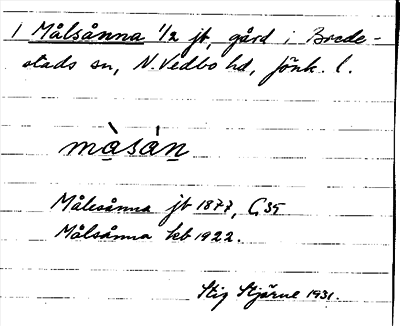 1 Målsånna 1/2 jb, gård i Brede-
stads sn, N. Vedbo hd, Jönk. l.
màsán
Målesånna jb 1877, C, 35
Målsånna kb 1922.
Stig Stjärne 1931.